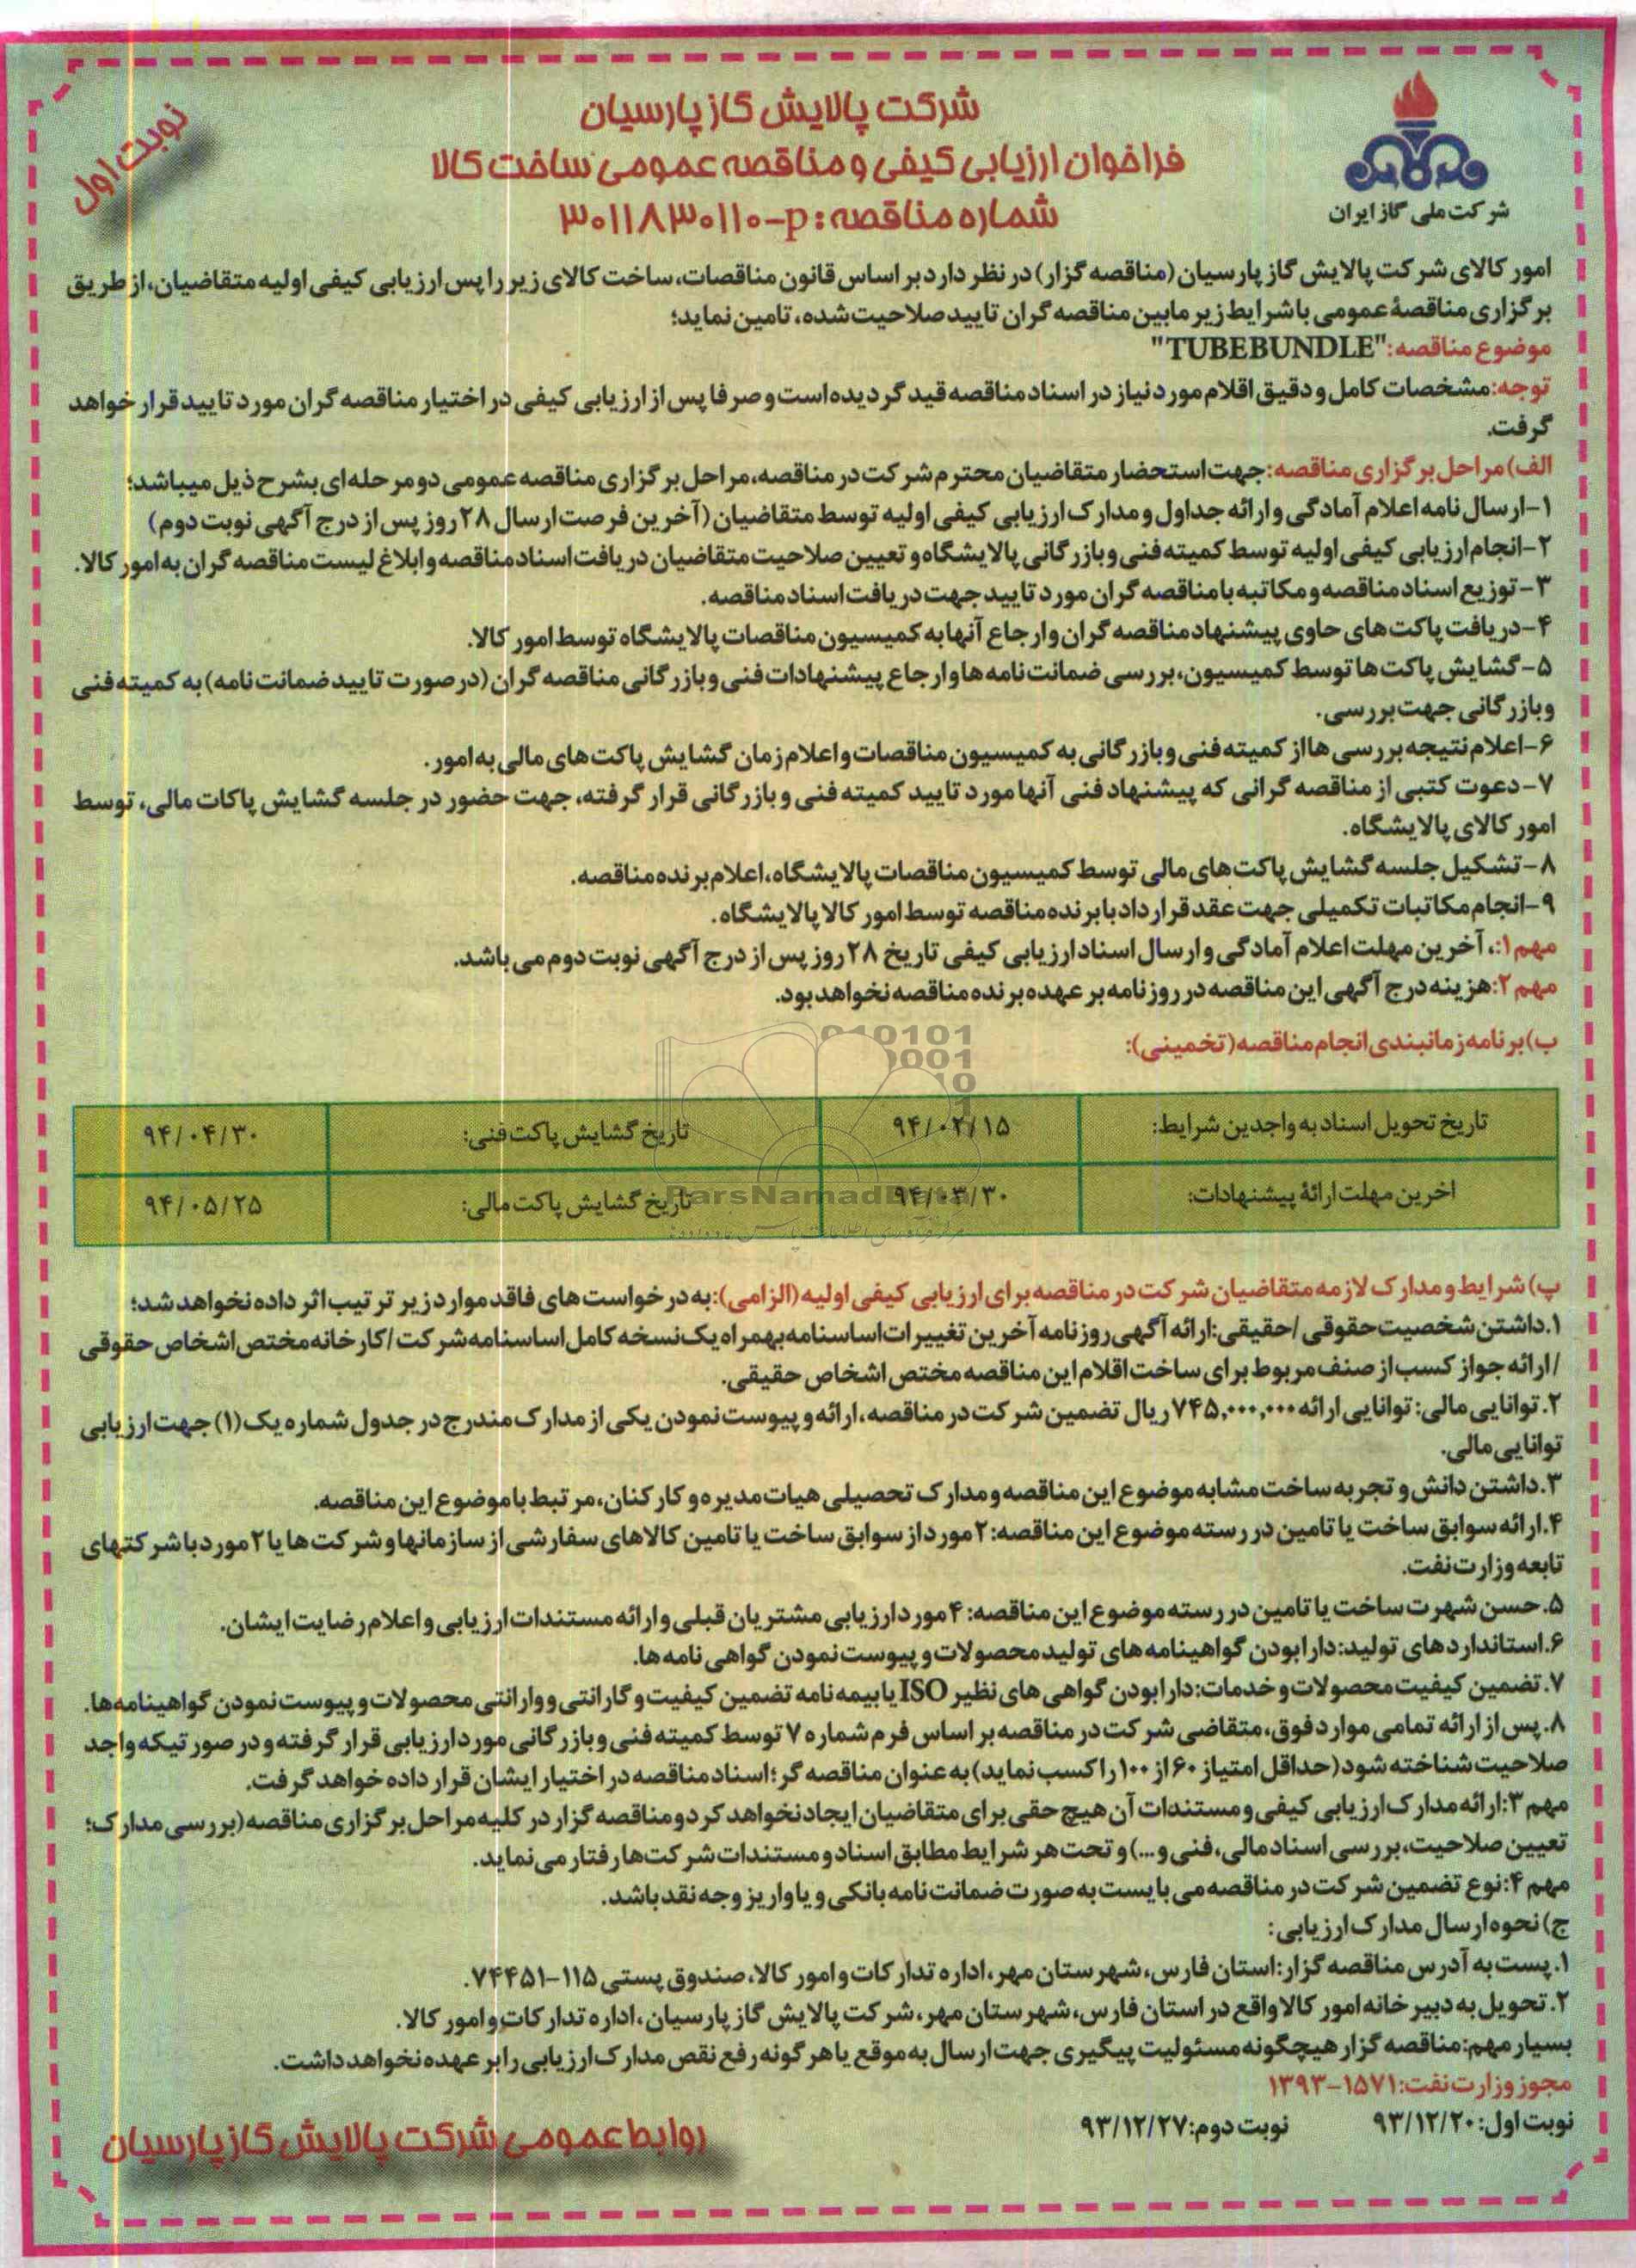 نوبت اول
شرکت ملی گاز ایران
شرکت پالایش گاز پارسیان
فراخوان ارزیابی کیفی و مناقصه عمومی ساخت کالا
شماره مناقصه: p-۳۰۱۱۸۳۰۱۱۰
امور کالای شرکت پالایش گاز پارسیان (مناقصه گزار) در نظر دارد بر اساس قانون مناقصات، ساخت کالای زیر را پس ارزیابی کیفی اولیه متقاضیان، از طریق
برگزاری مناقصهٔ عمومی با شرایط زیر مابین مناقصه گران تایید صلاحیت شده، تامین نماید؛
موضوع مناقصه: "TUBEBUNDLE"
توجه: مشخصات کامل و دقیق اقلام مورد نیاز در اسناد مناقصه قید گردیده است و صرفا پس از ارزیابی کیفی در اختیار مناقصه گران مورد تایید قرار خواهد
گرفت.
الف) مراحل برگزاری مناقصه: جهت استحضار متقاضیان محترم شرکت در مناقصه، مراحل برگزاری مناقصه عمومی دو مرحله ای بشرح ذیل میباشد؛
۱-ارسال نامه اعلام آمادگی و ارائه جداول و مدارک ارزیابی کیفی اولیه توسط متقاضیان (آخرین فرصت ارسال ۲۸ روز پس از درج آگهی نوبت دوم)
۲-انجام ارزیابی کیفی اولیه توسط کمیته فنی و بازرگانی پالایشگاه و تعیین صلاحیت متقاضیان دریافت اسناد مناقصه و ابلاغ لیست مناقصه گران به امور کالا.
۳- توزیع اسناد مناقصه و مکاتبه با مناقصه گران مورد تایید جهت دریافت اسناد مناقصه.
۴-دریافت پاکت های حاوی پیشنهاد مناقصه گران و ارجاع آنها به کمیسیون مناقصات پالایشگاه توسط امور کالا.
۵-گشایش پاکت ها توسط کمیسیون، بررسی ضمانت نامه ها و ارجاع پیشنهادات فنی و بازرگانی مناقصه گران (در صورت تایید ضمانت نامه) به کمیته فنی
و بازرگانی جهت بررسی.
۶-اعلام نتیجه بررسی ها از کمیته فنی و بازرگانی به کمیسیون مناقصات و اعلام زمان گشایش پاکت های مالی به امور.
۷-دعوت کتبی از مناقصه گرانی که پیشنهاد فنی آنها مورد تایید کمیته فنی و بازرگانی قرار گرفته، جهت حضور در جلسه گشایش پاکات مالی، توسط
امور کالای پالایشگاه.
۸-تشکیل جلسه گشایش پاکت های مالی توسط کمیسیون مناقصات پالایشگاه، اعلام برنده مناقصه.
۹-انجام مکاتبات تکمیلی جهت عقد قرارداد با برنده مناقصه توسط امور کالا پالایشگاه.
مهم ۱:، آخرین مهلت اعلام آمادگی و ارسال اسناد ارزیابی کیفی تاریخ ۲۸ روز پس از درج آگهی نوبت دوم می باشد.
مهم ۲: هزینه درج آگهی این مناقصه در روزنامه بر عهده برنده مناقصه نخواهد بود.
ب) برنامه زمانبندی انجام مناقصه (تخمینی):
تاریخ تحویل اسناد به واجدین شرایط: ۹۴/۰۲/۱۵ تاریخ گشایش پاکت فنی: ۹۴/۰۴/۳۰
اخرین مهلت ارائهٔ پیشنهادات: ۹۴/۰۳/۳۰ تاریخ گشایش پاکت مالی: ۹۴/۰۵/۲۵
ParsNamadData
پ) شرایط و مدارک لازمه متقاضیان شرکت در مناقصه برای ارزیابی کیفی اولیه (الزامی): به درخواست های فاقد موارد زیر ترتیب اثر داده نخواهد شد؛
۱. داشتن شخصیت حقوقی/حقیقی: ارائه آگهی روزنامه آخرین تغییرات اساسنامه بهمراه یک نسخه کامل اساسنامه شرکت/کارخانه مختص اشخاص حقوقی
/ارائه جواز کسب از صنف مربوط برای ساخت اقلام این مناقصه مختص اشخاص حقیقی.
۲. توانایی مالی: توانایی ارائه ۷۴۵,۰۰۰,۰۰۰ ریال تضمین شرکت در مناقصه، ارائه و پیوست نمودن یکی از مدارک مندرج در جدول شماره یک (۱) جهت ارزیابی
توانایی مالی.
۳. داشتن دانش و تجربه ساخت مشابه موضوع این مناقصه و مدارک تحصیلی هیات مدیره و کارکنان، مرتبط با موضوع این مناقصه.
۴. ارائه سوابق ساخت یا تامین در رسته موضوع این مناقصه: ۲ مورد از سوابق ساخت یا تامین کالاهای سفارشی از سازمانها و شرکت ها یا ۲ مورد با شرکتهای
تابعه وزارت نفت.
۵. حسن شهرت ساخت یا تامین در رسته موضوع این مناقصه: ۴ مورد ارزیابی مشتریان قبلی و ارائه مستندات ارزیابی و اعلام رضایت ایشان.
۶. استانداردهای تولید: دارا بودن گواهینامه های تولید محصولات و پیوست نمودن گواهی نامه ها.
۷. تضمین کیفیت محصولات و خدمات: دارا بودن گواهی های نظیر ISO یا بیمه نامه تضمین کیفیت و گارانتی و وارانتی محصولات و پیوست نمودن گواهینامه ها.
۸. پس از ارائه تمامی موارد فوق، متقاضی شرکت در مناقصه بر اساس فرم شماره ۷ توسط کمیته فنی و بازرگانی مورد ارزیابی قرار گرفته و در صورتیکه واجد
صلاحیت شناخته شود (حداقل امتیاز ۶۰ از ۱۰۰ را کسب نماید) به عنوان مناقصه گر؛ اسناد مناقصه در اختیار ایشان قرار داده خواهد گرفت.
مهم ۳: ارائه مدارک ارزیابی کیفی و مستندات آن هیچ حقی برای متقاضیان ایجاد نخواهد کرد و مناقصه گزار در کلیه مراحل برگزاری مناقصه (بررسی مدارک؛
تعیین صلاحیت، بررسی اسناد مالی، فنی و ...) و تحت هر شرایط مطابق اسناد و مستندات شرکت ها رفتار می نماید.
مهم ۴: نوع تضمین شرکت در مناقصه می بایست به صورت ضمانت نامه بانکی و یا واریز وجه نقد باشد.
ج) نحوه ارسال مدارک ارزیابی:
۱. پست به آدرس مناقصه گزار: استان فارس، شهرستان مهر، اداره تدارکات و امور کالا، صندوق پستی ۱۱۵-۷۴۴۵۱.
۲. تحویل به دبیرخانه امور کالا واقع در استان فارس، شهرستان مهر، شرکت پالایش گاز پارسیان، اداره تدارکات و امور کالا.
بسیار مهم: مناقصه گزار هیچگونه مسئولیت پیگیری جهت ارسال به موقع یا هر گونه رفع نقص مدارک ارزیابی را بر عهده نخواهد داشت.
مجوز وزارت نفت: ۱۵۷۱-۱۳۹۳
نوبت اول: ۹۳/۱۲/۲۰ نوبت دوم: ۹۳/۱۲/۲۷
روابط عمومی شرکت پالایش گاز پارسیان